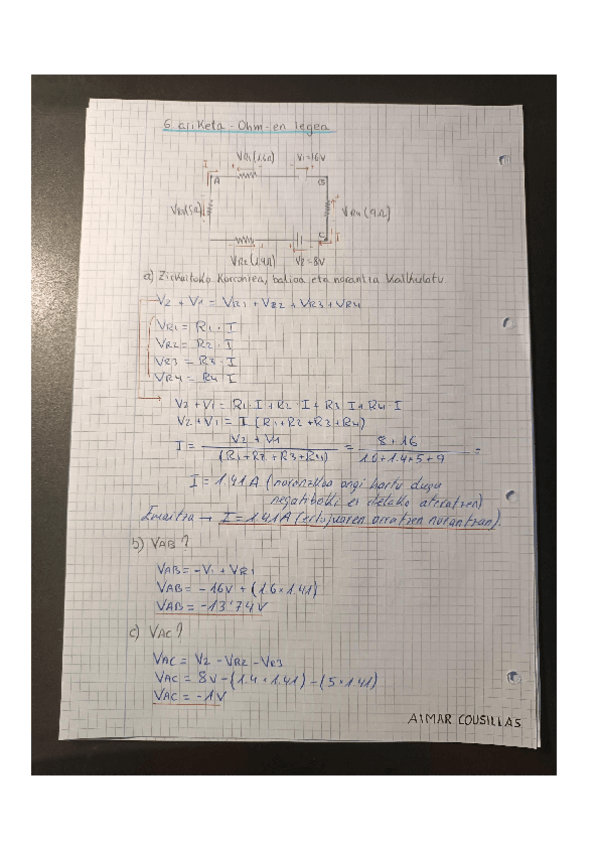 6 ariketa - Ohm-en legea
VR1 (1.6Ω) V1=16V
I
A B
VR3 (5Ω) VR4 (9Ω)
C I
VR2 (1.4Ω) V2=8V
a) Zirkuitoko korrontea, balioa eta norantza kalkulatu
V2 + V1 = VR1 + VR2 + VR3 + VR4
VR1 = R1 · I
VR2 = R2 · I
VR3 = R3 · I
VR4 = R4 · I
V2 + V1 = R1 · I + R2 · I + R3 · I + R4 · I
V2 + V1 = I (R1 + R2 + R3 + R4)
I = V2 + V1 / (R1 + R2 + R3 + R4) = 8 + 16 / 1.6 + 1.4 + 5 + 9 =
I = 1.41A (norantzkoa ongi hartu dugu
negatiboki ez delako ateratzen)
Emaitza → I = 1.41A (erlojuaren orratzen norantzan).
b) VAB?
VAB = -V1 + VR1
VAB = -16V + (1.6 × 1.41)
VAB = -13'74V
c) VAC?
VAC = V2 - VR2 - VR3
VAC = 8V - (1.4 × 1.41) - (5 × 1.41)
VAC = -1V
AIMAR COUSILLAS